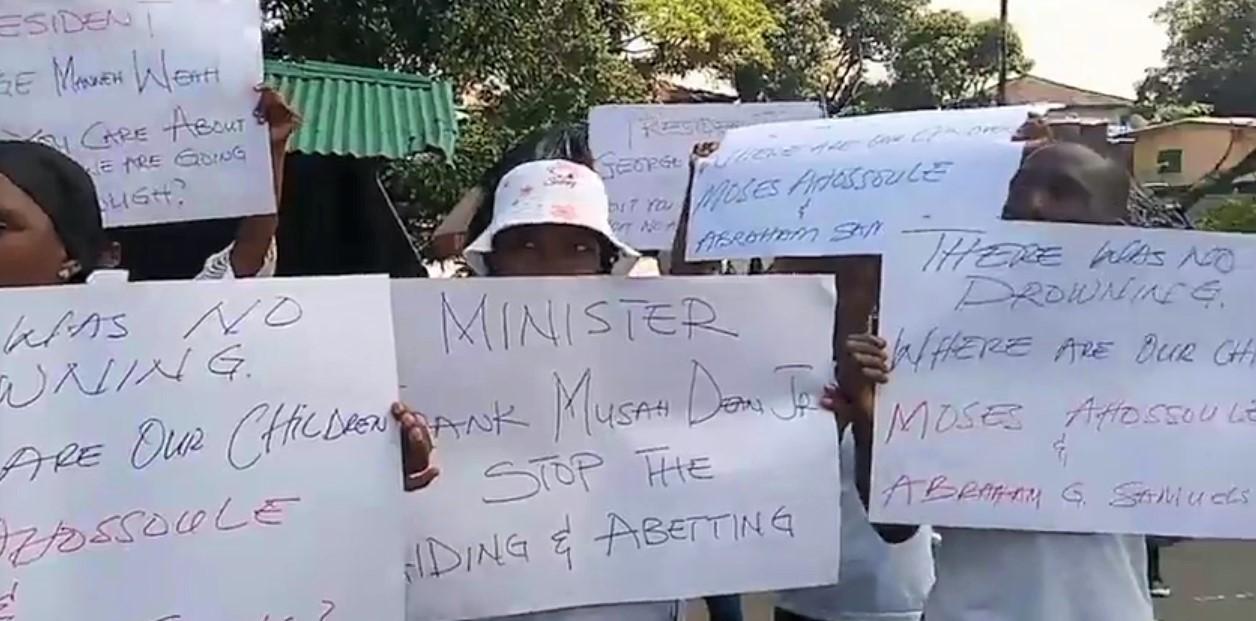 ESIDENT
GE MANNEH WEAH
YOU CARE ABOUT
WE ARE GOING
OUGH?
PRESIDENT
GEORGE
WHERE ARE OUR CHILDREN
MOSES AHOSSOULE
&
ABRAHAM SAM
WAS NO
WNING.
ARE OUR CHILDREN
AHOSSOULE
&
MINISTER
ANK MUSAH DEAN JR
STOP THE
AIDING & ABETTING
THERE WAS NO
DROWNING.
WHERE ARE OUR CH
MOSES AHOSSOULE
&
ABRAHAM G. SAMUELS